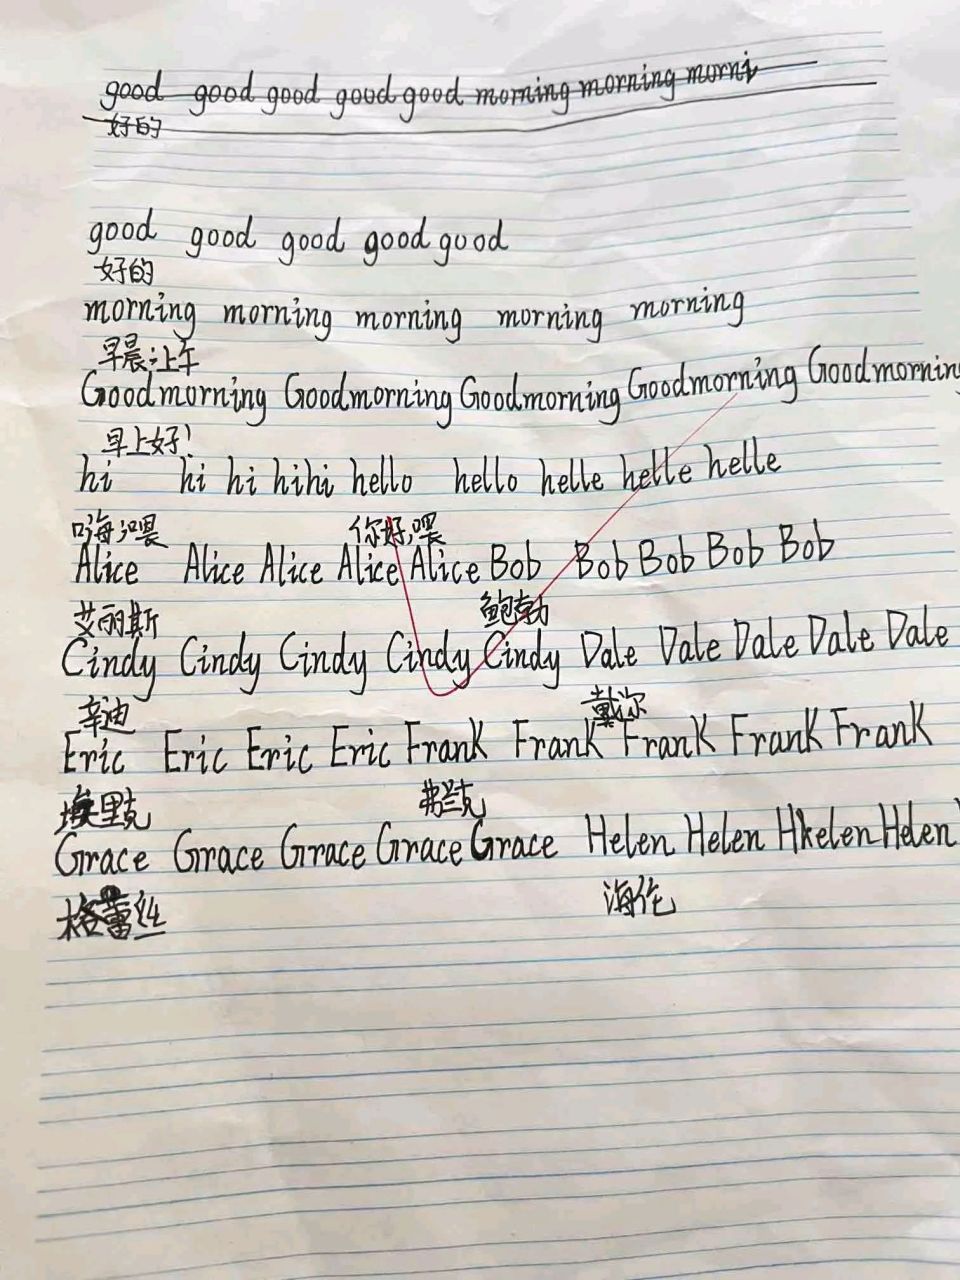 good good good good good morning morning morni
好的
good good good good good
好的
morning morning morning morning morning
早晨;上午
Goodmorning Goodmorning Goodmorning Goodmorning Goodmorning
早上好!
hi hi hi hihi hello hello helle helle helle
嗨;喂 你好,喂
Alice Alice Alice Alice Alice Bob Bob Bob Bob Bob
艾丽斯 鲍勃
Cindy Cindy Cindy Cindy Cindy Dale Dale Dale Dale Dale
辛迪 戴尔
Eric Eric Eric Eric Frank Frank Frank Frank Frank
埃里克 弗兰克
Grace Grace Grace Grace Grace Helen Helen Hkelen Helen
格蕾丝 海伦